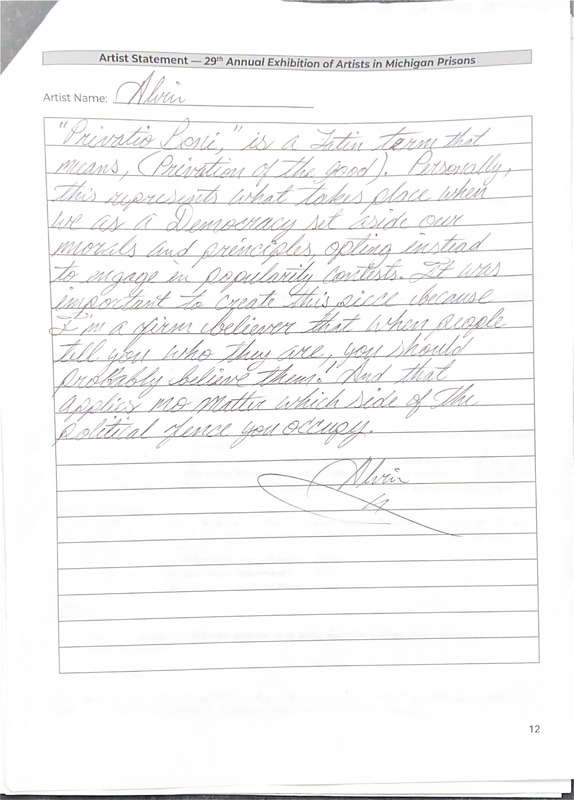 Artist Statement — 29th Annual Exhibition of Artists in Michigan Prisons
Artist Name: Alvin
"Privatio Boni," is a Latin term that
means, (Privation of the good). Personally,
this represents what takes place when
we as a Democracy set aside our
morals and principles opting instead
to engage in popularity contests. It was
important to create this piece because
I'm a firm believer that when people
tell you who they are, you should
probably believe them! And that
applies no matter which side of the
political fence you occupy.
Alvin
12